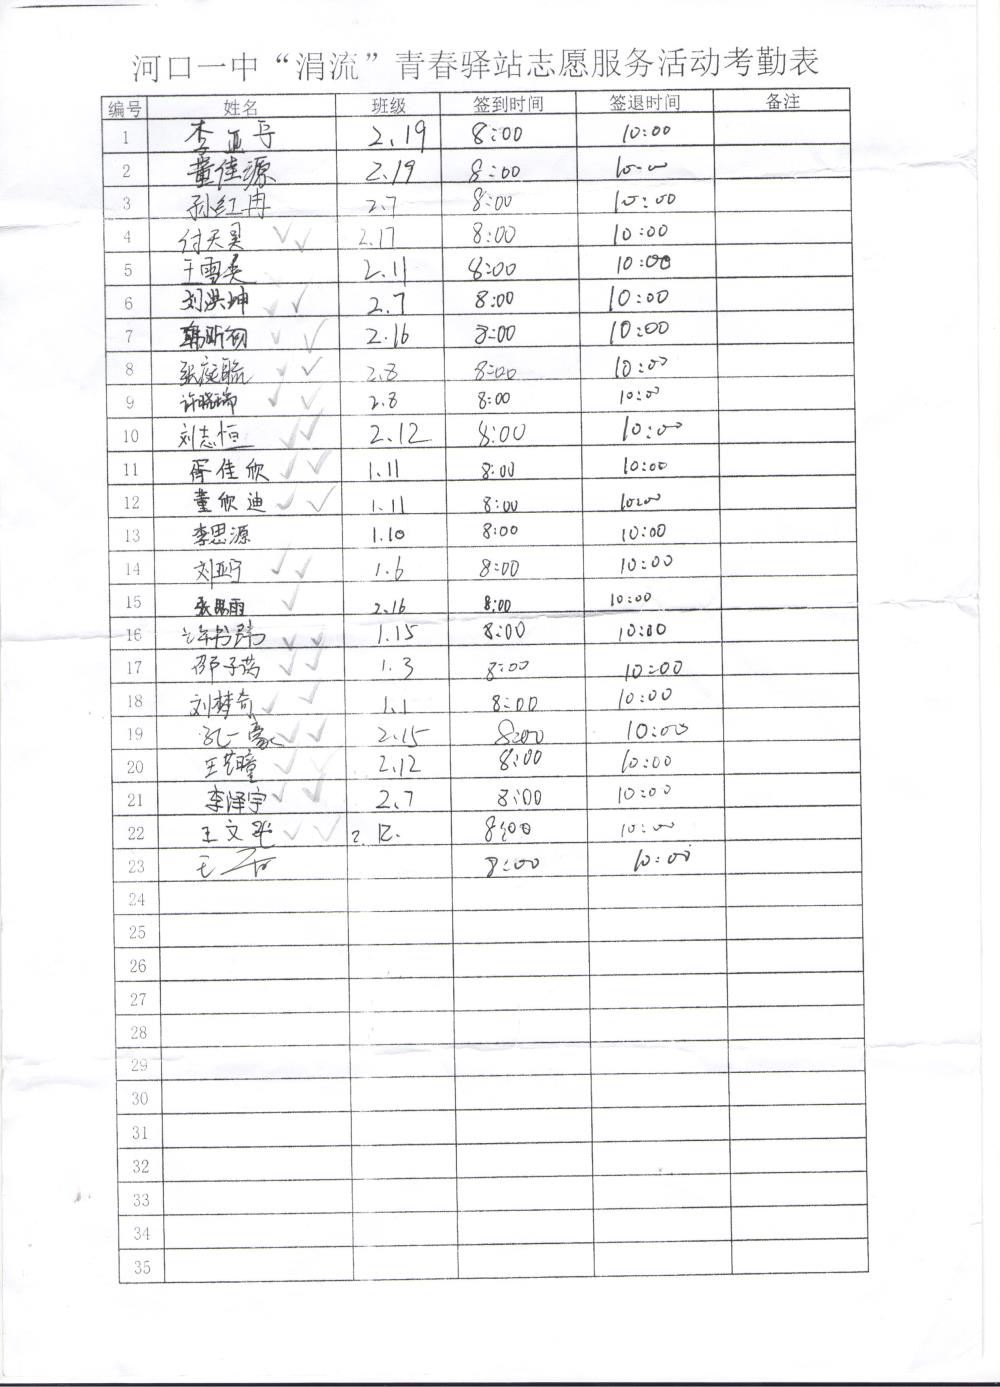 河口一中“涓流”青春驿站志愿服务活动考勤表
编号 姓名 班级 签到时间 签退时间 备注
1 李亚宁 2.19 8:00 10:00
2 董佳源 2.19 8:00 10:00
3 孙红冉 2.7 8:00 10:00
4 付天昊 2.17 8:00 10:00
5 王雪 2.11 8:00 10:00
6 刘洪坤 2.7 8:00 10:00
7 韩昕 2.16 8:00 10:00
8 张庭毓 2.8 8:00 10:00
9 许晓瑞 2.8 8:00 10:00
10 刘志恒 2.12 8:00 10:00
11 胥佳欣 1.11 8:00 10:00
12 董欣迪 1.11 8:00 10:00
13 李思源 1.10 8:00 10:00
14 刘亚宁 1.6 8:00 10:00
15 张 雨 2.16 8:00 10:00
16 许书玮 1.15 8:00 10:00
17 邵子 1.3 8:00 10:00
18 刘梦奇 1.1 8:00 10:00
19 孔一豪 2.15 8:00 10:00
20 王艺瞳 2.12 8:00 10:00
21 李泽宇 2.7 8:00 10:00
22 王文 2.12. 8:00 10:00
23 王 8:00 10:00
24
25
26
27
28
29
30
31
32
33
34
35